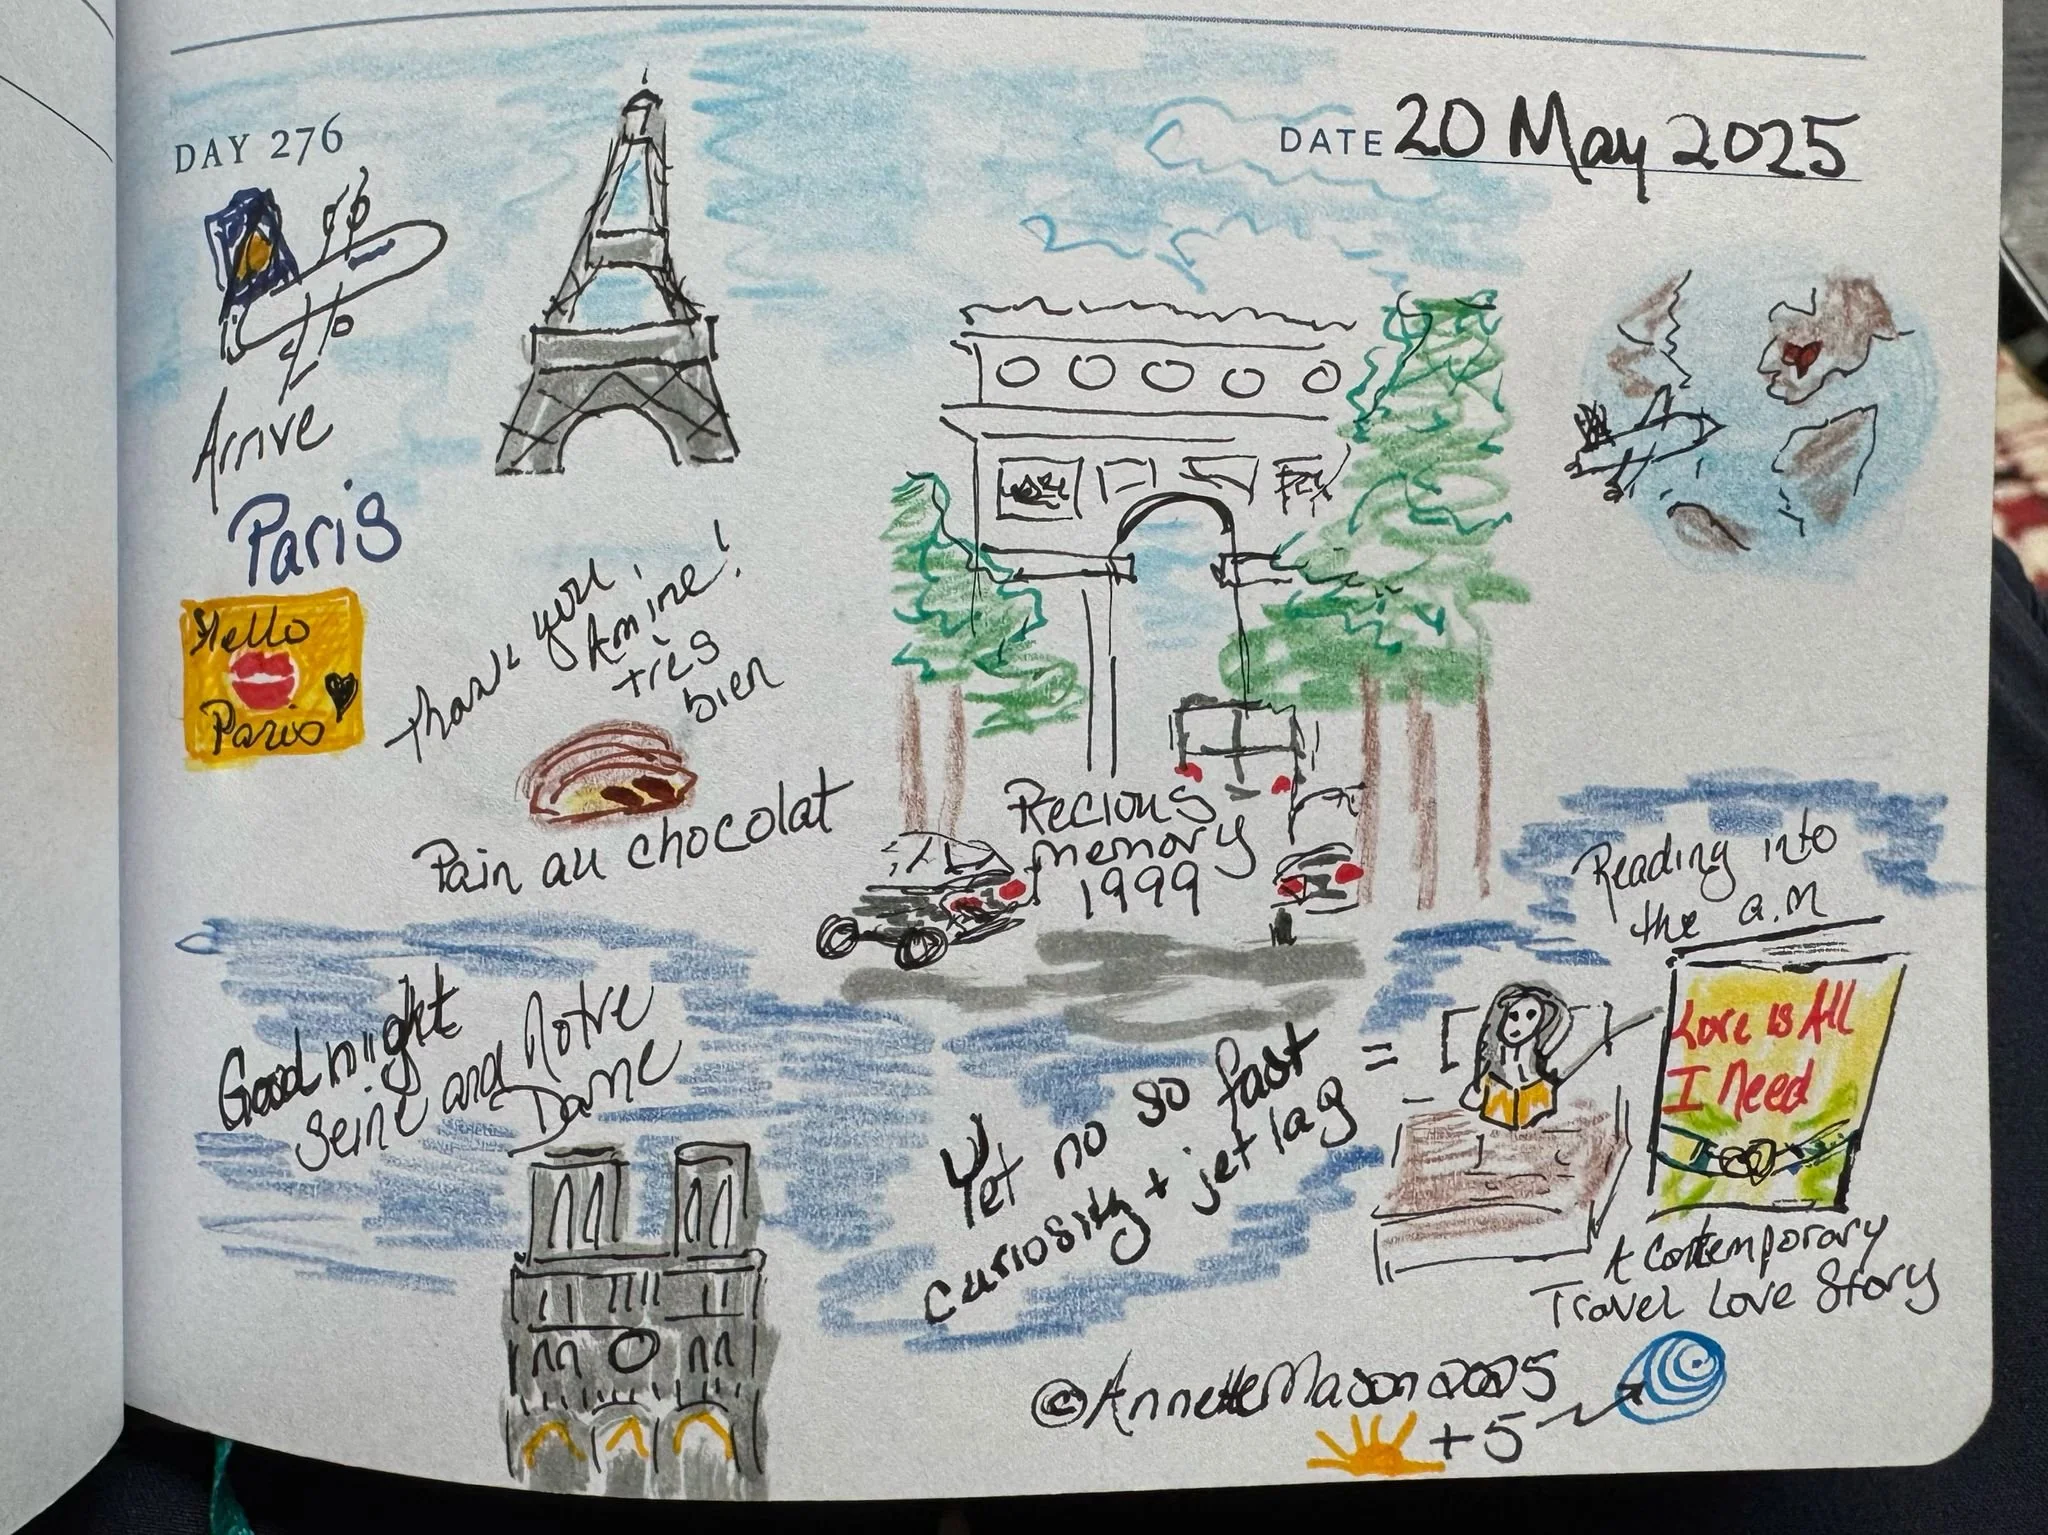 DAY 276
DATE 20 May 2025
Arrive
Paris
Hello
Paris
thank you,
Amine!
très
bien
Pain au chocolat
Recious
memory
1999
Reading into
the a.m
Good night
Seine and Notre
Dame
Yet no so fast
curiosity + jet lag
=
Love is All
I Need
A Contemporary
Travel Love Story
©AnnetteMason2025
+5